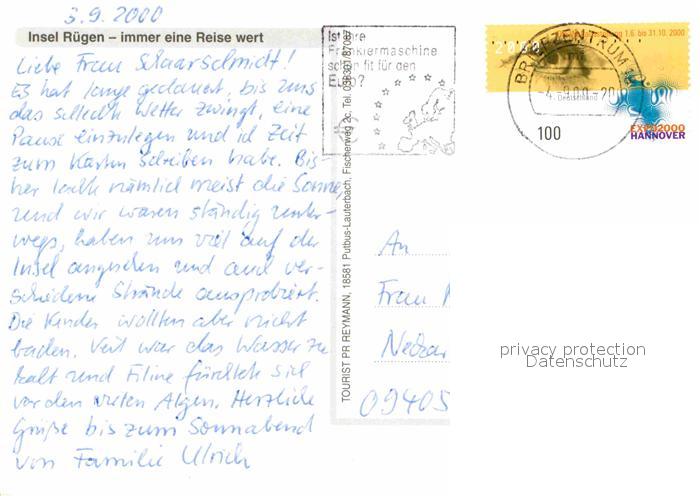 3.9.2000
Insel Rügen – immer eine Reise wert
Liebe Frau Schaarschmidt!
Es hat lange gedauert, bis uns
das schlecht Wetter zwingt, eine
Pause einzulegen und ich Zeit
zum Karten schreiben habe. Bis-
her lacht nämlich meist die Sonne,
und wir waren ständig unter-
wegs, haben uns viel auf der
Insel angesehen und auch ver-
schiedene Strände ausprobiert.
Die Kinder wollten aber nicht
baden. Veit war das Wasser zu
kalt und Filine fürchtet sich
vor den vielen Algen. Herzliche
Grüße bis zum Sonnabend
von Familie Ulrich
TOURIST PR REYMANN, 18581 Putbus-Lauterbach, Fischerweg 2c, Tel. 038301/87087
Ist Ihre
Frankiermaschine
schon fit für den
Euro?
1.6. bis 31.10.2000
BRIEFZENTRUM
-4.-9.00-20
Deutschland
100
EXPO2000
HANNOVER
An
Frau
09405
privacy protection
Datenschutz